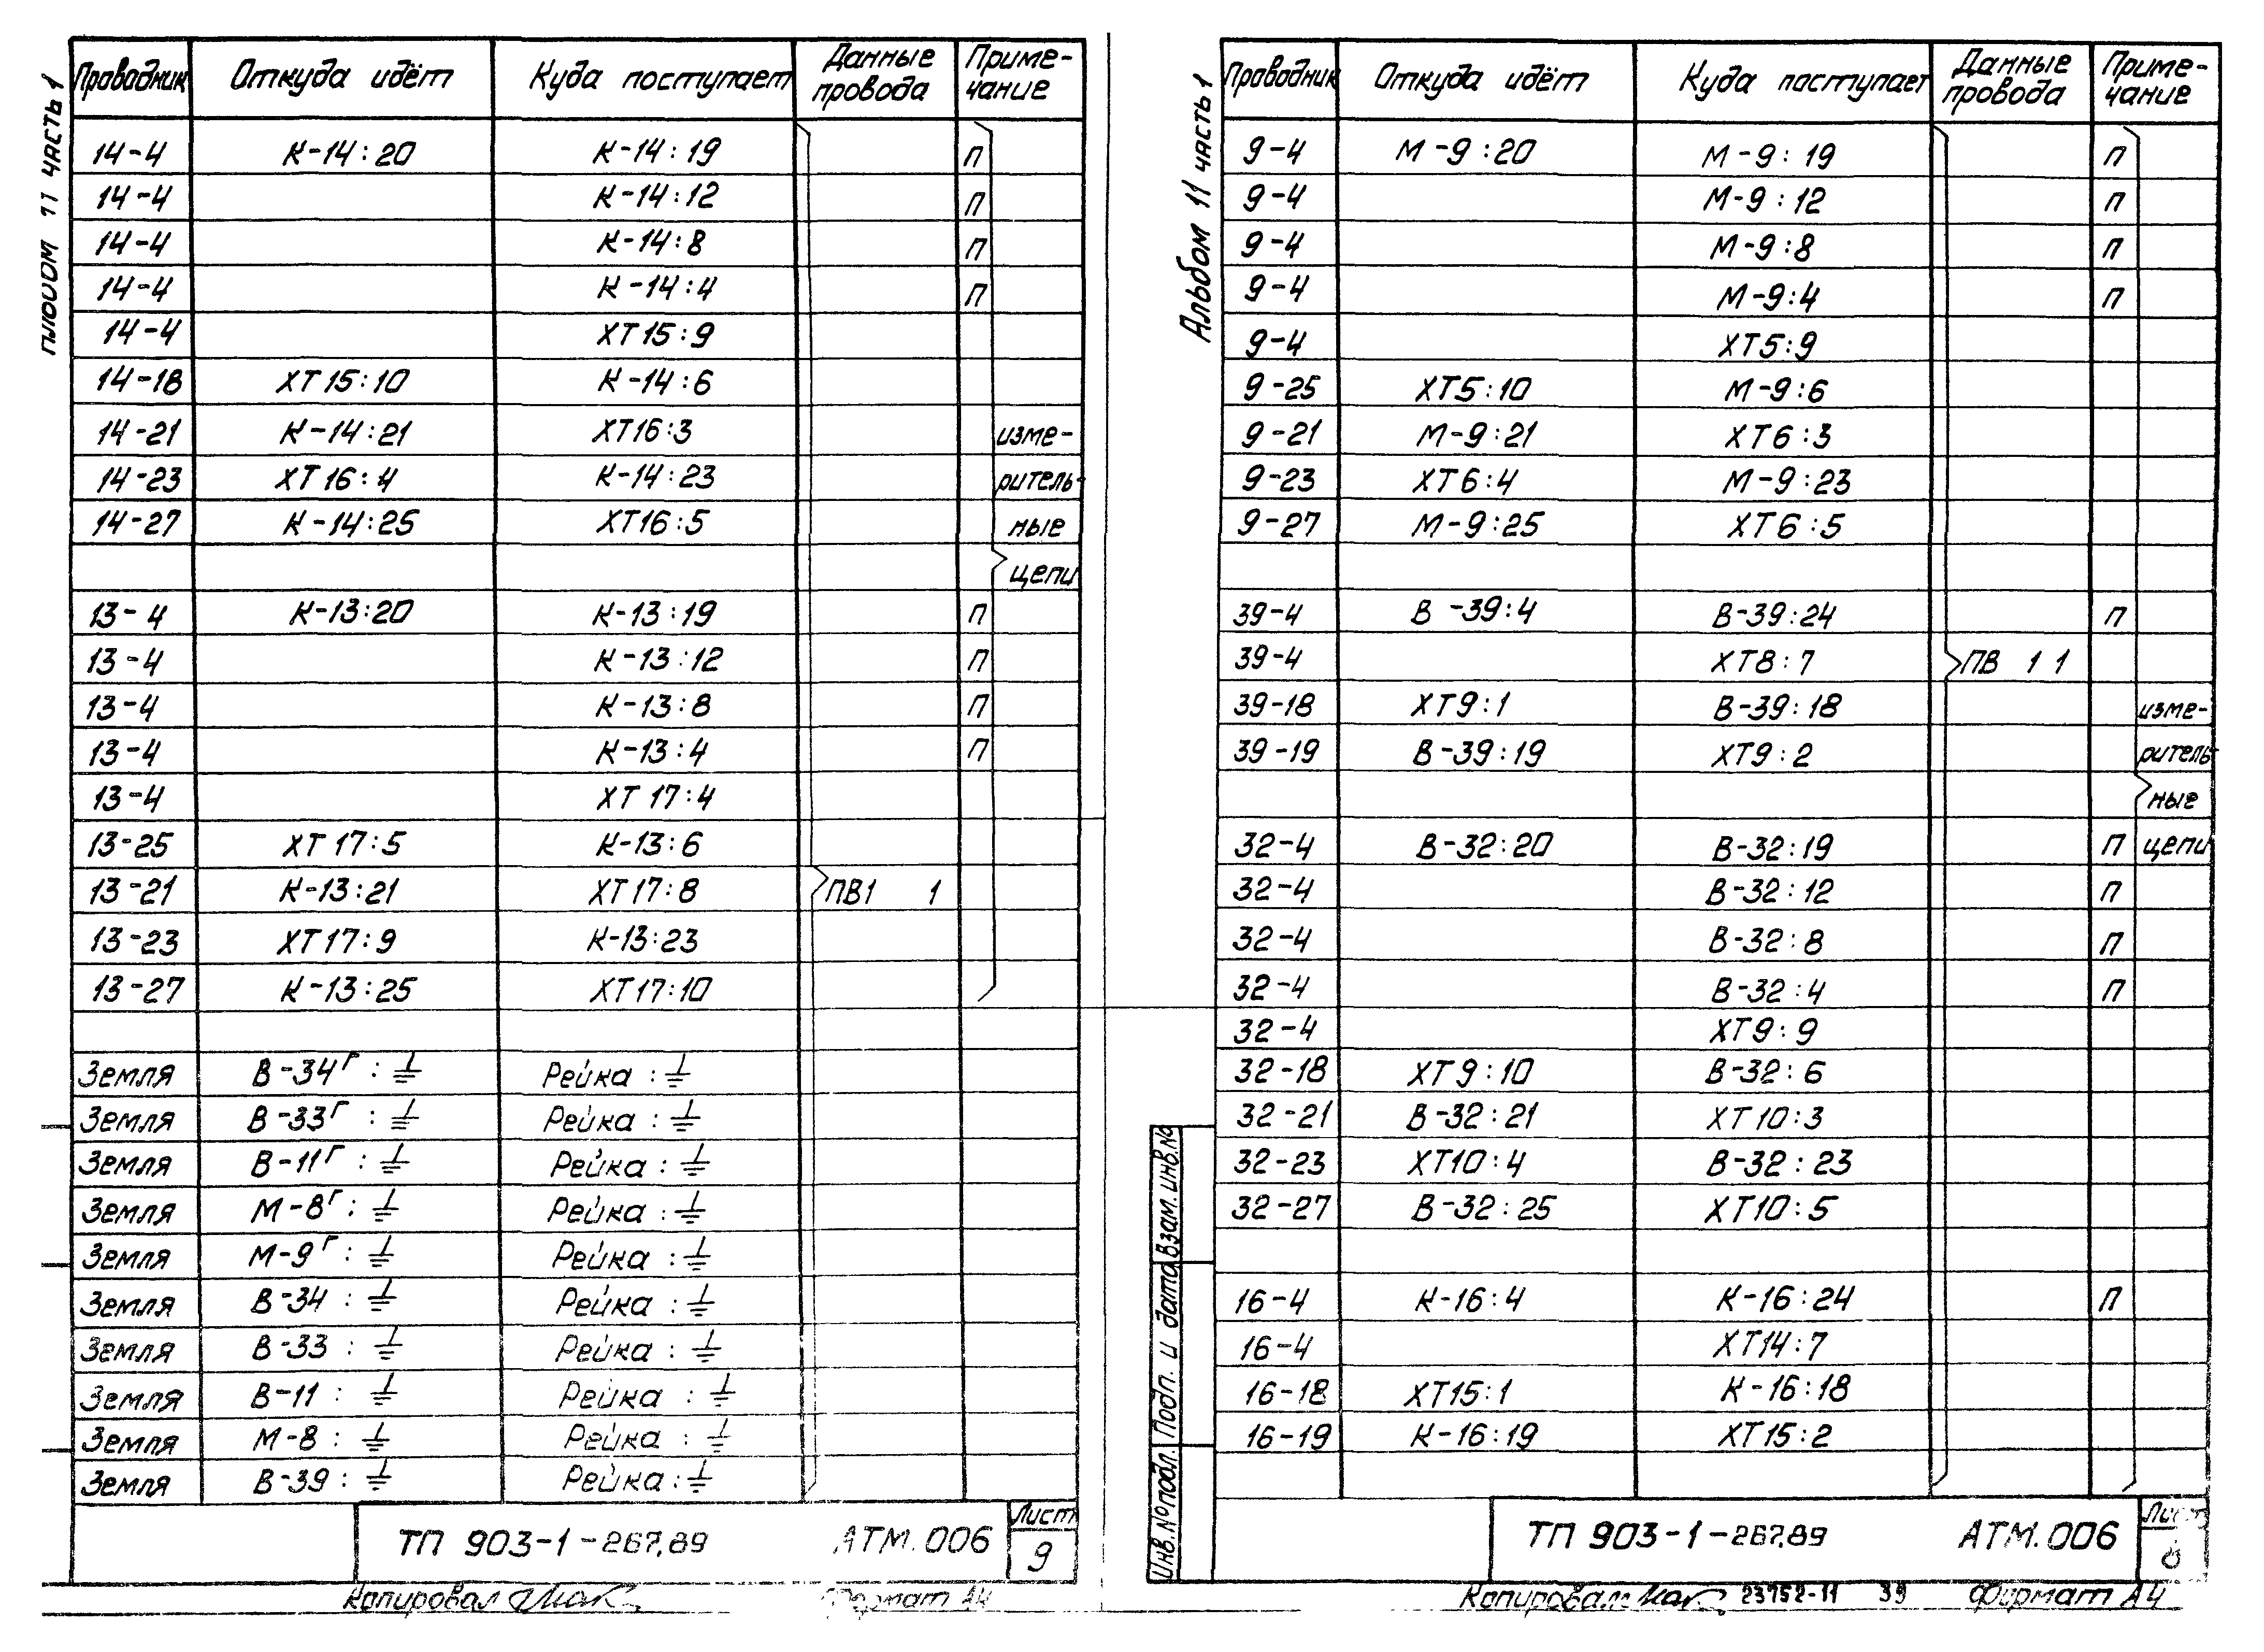 Альбом 11 часть 1
Проводник Откуда идёт Куда поступает Данные провода Приме-чание
14-4 К-14:20 К-14:19 П
14-4 К-14:12 П
14-4 К-14:8 П
14-4 К-14:4 П
14-4 ХТ15:9
14-18 ХТ15:10 К-14:6
14-21 К-14:21 ХТ16:3 изме-
14-23 ХТ16:4 К-14:23 ритель-
14-27 К-14:25 ХТ16:5 ные
цепи
13-4 К-13:20 К-13:19 П
13-4 К-13:12 П
13-4 К-13:8 П
13-4 К-13:4 П
13-4 ХТ17:4
13-25 ХТ17:5 К-13:6
13-21 К-13:21 ХТ17:8 ПВ1 1
13-23 ХТ17:9 К-13:23
13-27 К-13:25 ХТ17:10
Земля В-34г : ⏚ Рейка : ⏚
Земля В-33г : ⏚ Рейка : ⏚
Земля В-11г : ⏚ Рейка : ⏚
Земля М-8г : ⏚ Рейка : ⏚
Земля М-9г : ⏚ Рейка : ⏚
Земля В-34 : ⏚ Рейка : ⏚
Земля В-33 : ⏚ Рейка : ⏚
Земля В-11 : ⏚ Рейка : ⏚
Земля М-8 : ⏚ Рейка : ⏚
Земля В-39 : ⏚ Рейка : ⏚
ТП 903-1-267.89 АТМ.006 Лист 9
Копировал Формат А4
Альбом 11 часть 1
Проводник Откуда идёт Куда поступает Данные провода Приме-чание
9-4 М-9:20 М-9:19 П
9-4 М-9:12 П
9-4 М-9:8 П
9-4 М-9:4 П
9-4 ХТ5:9
9-25 ХТ5:10 М-9:6
9-21 М-9:21 ХТ6:3
9-23 ХТ6:4 М-9:23
9-27 М-9:25 ХТ6:5
39-4 В-39:4 В-39:24 П
39-4 ХТ8:7 ПВ 1 1
39-18 ХТ9:1 В-39:18 изме-
39-19 В-39:19 ХТ9:2 ритель-
ные
32-4 В-32:20 В-32:19 П цепи
32-4 В-32:12 П
32-4 В-32:8 П
32-4 В-32:4 П
32-4 ХТ9:9
32-18 ХТ9:10 В-32:6
32-21 В-32:21 ХТ10:3
32-23 ХТ10:4 В-32:23
32-27 В-32:25 ХТ10:5
16-4 К-16:4 К-16:24 П
16-4 ХТ14:7
16-18 ХТ15:1 К-16:18
16-19 К-16:19 ХТ15:2
Инв.№подл. Подп. и дата Взам.инв.№
ТП 903-1-267.89 АТМ.006 Лист
Копировал 23752-11 39 Формат А4